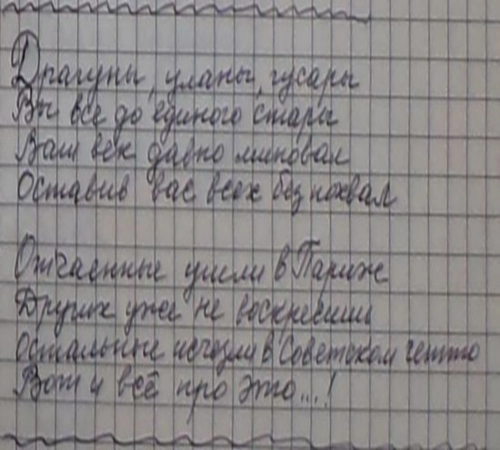 Драгуны, уланы, гусары
Вы все до единого стары
Ваш век давно миновал
Оставив вас всех без похвал
Отчаенные ушли в Париж
Других уже не воскресишь
Остальные исчезли в Советском гетто
Вот и всё про это...!